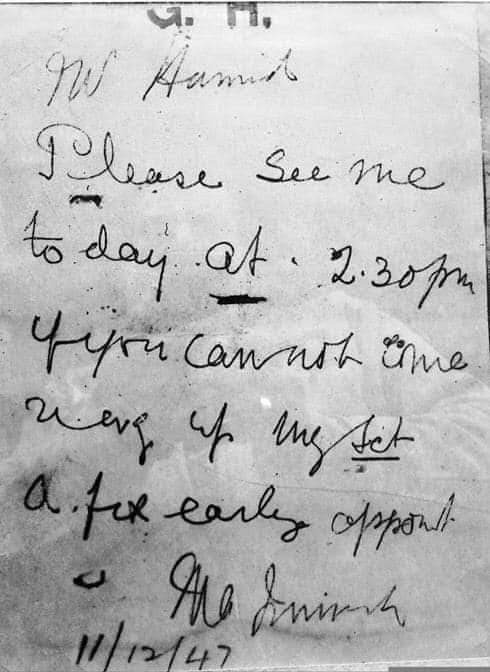 G. H.
Mr Hamid
Please see me
today at 2.30 pm
If you cannot come
ring up my Sct
& fix early appoint
M A Jinnah
11/12/47